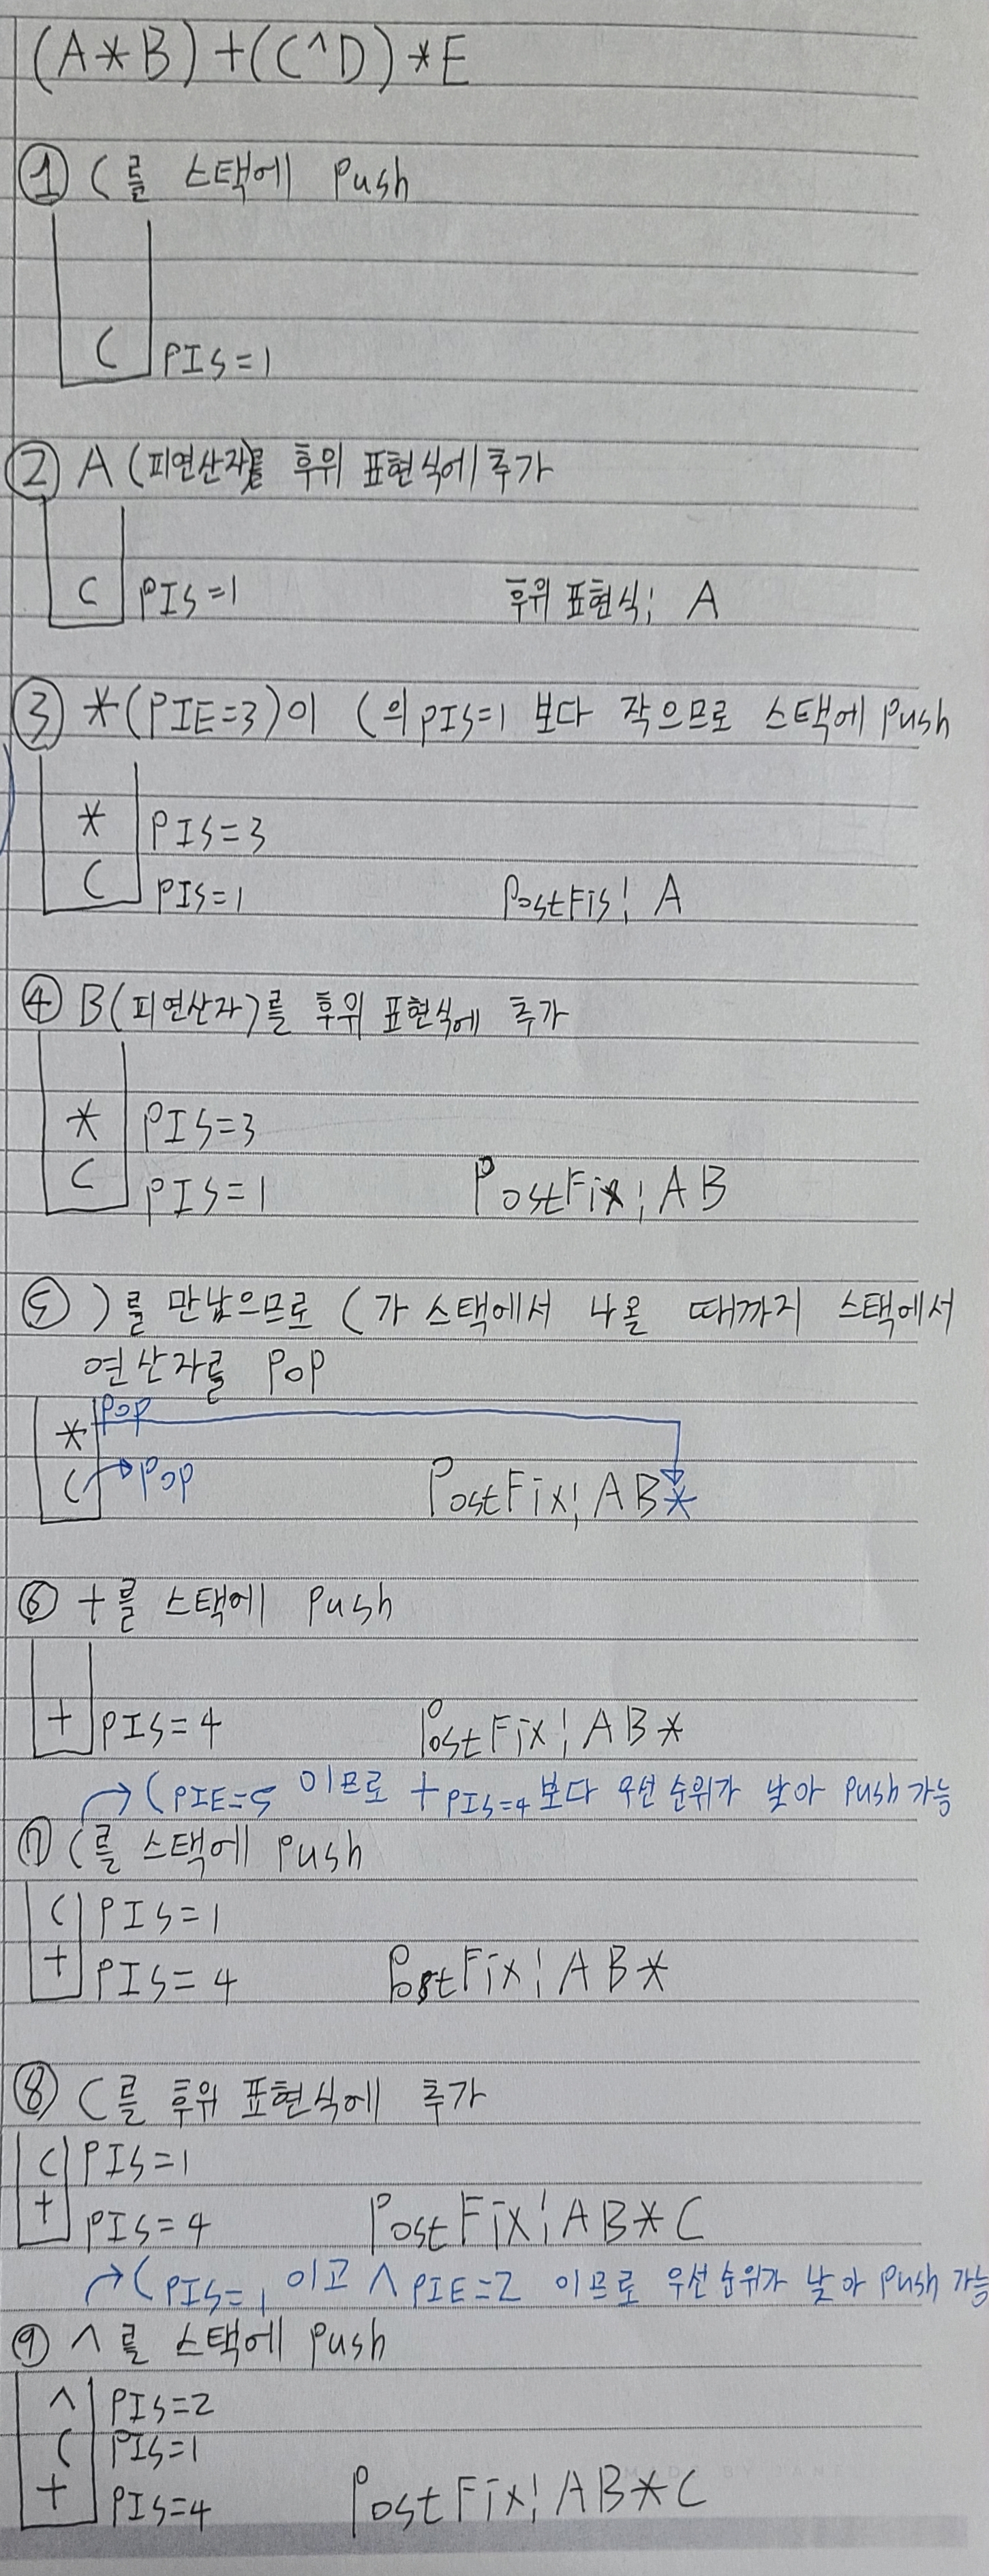 (A*B)+(C^D)*E
① (를 스택에 Push
( PIS=1
② A (피연산자)를 후위 표현식에 추가
( PIS=1 후위 표현식: A
③ *(PIE=3)이 (의 PIS=1 보다 작으므로 스택에 Push
* PIS=3
( PIS=1 PostFis: A
④ B(피연산자)를 후위 표현식에 추가
* PIS=3
( PIS=1 PostFix: AB
⑤ )를 만났으므로 (가 스택에서 나올 때까지 스택에서
연산자를 POP
* POP
( →POP PostFix: AB*
⑥ +를 스택에 Push
+ PIS=4 PostFix: AB*
→( PIE=5 이므로 + PIS=4 보다 우선 순위가 낮아 Push 가능
⑦ (를 스택에 Push
( PIS=1
+ PIS=4 PostFix: AB*
⑧ C를 후위 표현식에 추가
( PIS=1
+ PIS=4 PostFix: AB*C
→( PIS=1 이고 ^ PIE=2 이므로 우선 순위가 낮아 Push 가능
⑨ ^를 스택에 Push
^ PIS=2
( PIS=1
+ PIS=4 PostFix: AB*C